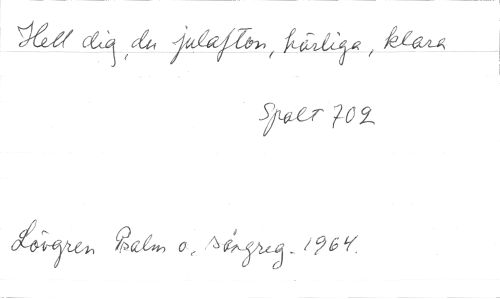 Hell dig, du julafton, härliga, klara
Spalt 702
Lövgren Psalm o. sångreg. 1964.